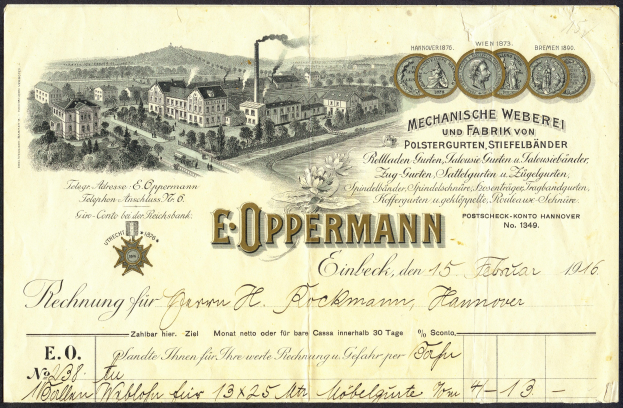 HANNOVER 1878. WIEN 1873. BREMEN 1890.
MECHANISCHE WEBEREI
UND FABRIK VON
POLSTERGURTEN, STIEFELBÄNDER
Rolladen Gurten, Jalousie Gurten u. Jalousiebänder,
Zug-Gurten, Sattelgurten u. Zügelgurten,
Spindelbänder, Spindelschnüre, Hosenträger, Tragbandgurten,
Koffergurten u. geklöppelte, Rouleaux-Schnüre.
Telegr. Adresse E. Oppermann
Telephon Anschluss № 6.
Giro-Conto bei der Reichsbank.
POSTSCHECK-KONTO HANNOVER
No. 1349.
UTRECHT 1876
E. OPPERMANN
Einbeck, den 15. Februar 1916
Rechnung für Herrn H. Rockmann, Hannover
Zahlbar hier. Ziel Monat netto oder für bare Cassa innerhalb 30 Tage % Sconto.
E.O. Sandte Ihnen für Ihre werte Rechnung u. Gefahr per
No 238.
1 Ballen Weblohn für 13 x 25 Mtr Möbelgurte 4 - 13 -